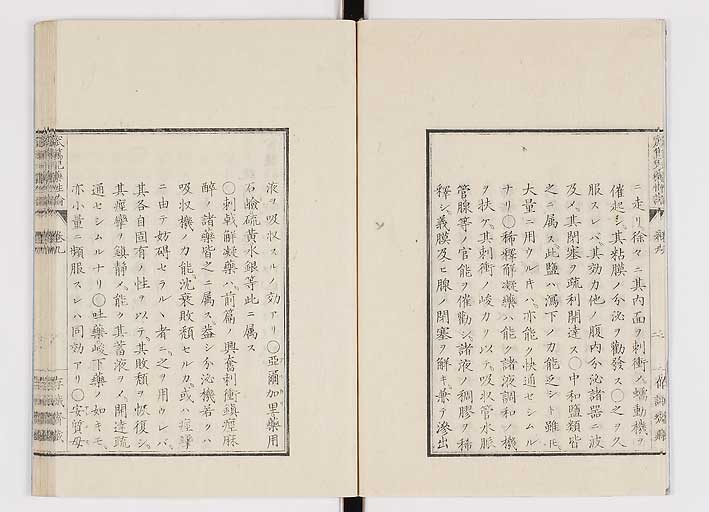 ニ走リ徐々ニ其内面ヲ刺衝ノ蠕動機ヲ
催起シ其粘膜ノ分泌ヲ勸發ス〇之ヲ久
服スレバ其効力他ノ腹内分泌諸器ニ波
及メ其閉塞ヲ疏利開達ス〇中和鹽類皆
之ニ属ス此鹽ハ瀉下ノ力能乏シト雖モ
大量ニ用ウルキハ亦能ク快通セシムル
ナリ〇稀釋解凝藥ハ能ク諸液調和ノ機
ヲ扶ケ其刺衝ノ峻力ヲ以テ吸收管水脈
管腺等ノ官能ヲ催勸シ諸液ノ稠膠ヲ稀
釋シ義膜及ヒ腺ノ閉塞ヲ解キ兼テ滲出
液ヲ吸収スルノ効アリ〇亞爾加里藥用
石鹼硫黄水銀等此ニ属ス
〇刺戟解凝藥ハ前篇ノ興奮刺衝鎮痙麻
醉ノ諸藥皆之ニ属ス蓋シ分泌機若クハ
吸収機ノ力能沈衰敗頽セルカ或ハ痙攣
ニ由テ妨碍セラルヽ者ニ之ヲ用ウレバ
其各自固有ノ性ヲ以テ其敗頽ヲ恢復シ
其痙攣ヲ鎮静メ能ク其蓄液ヲノ開達疏
通セシムルナリ〇吐藥峻下藥ノ如キモ
亦小量ニ頻服スレハ同効アリ〇安質母
卷九